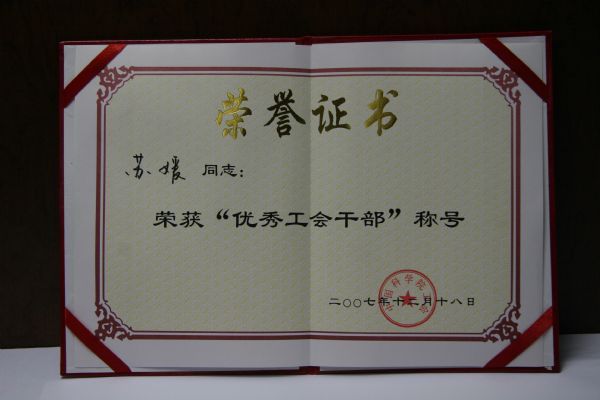 荣誉证书
苏媛 同志：
荣获“优秀工会干部”称号
中国科学院工会
二〇〇七年十二月十八日